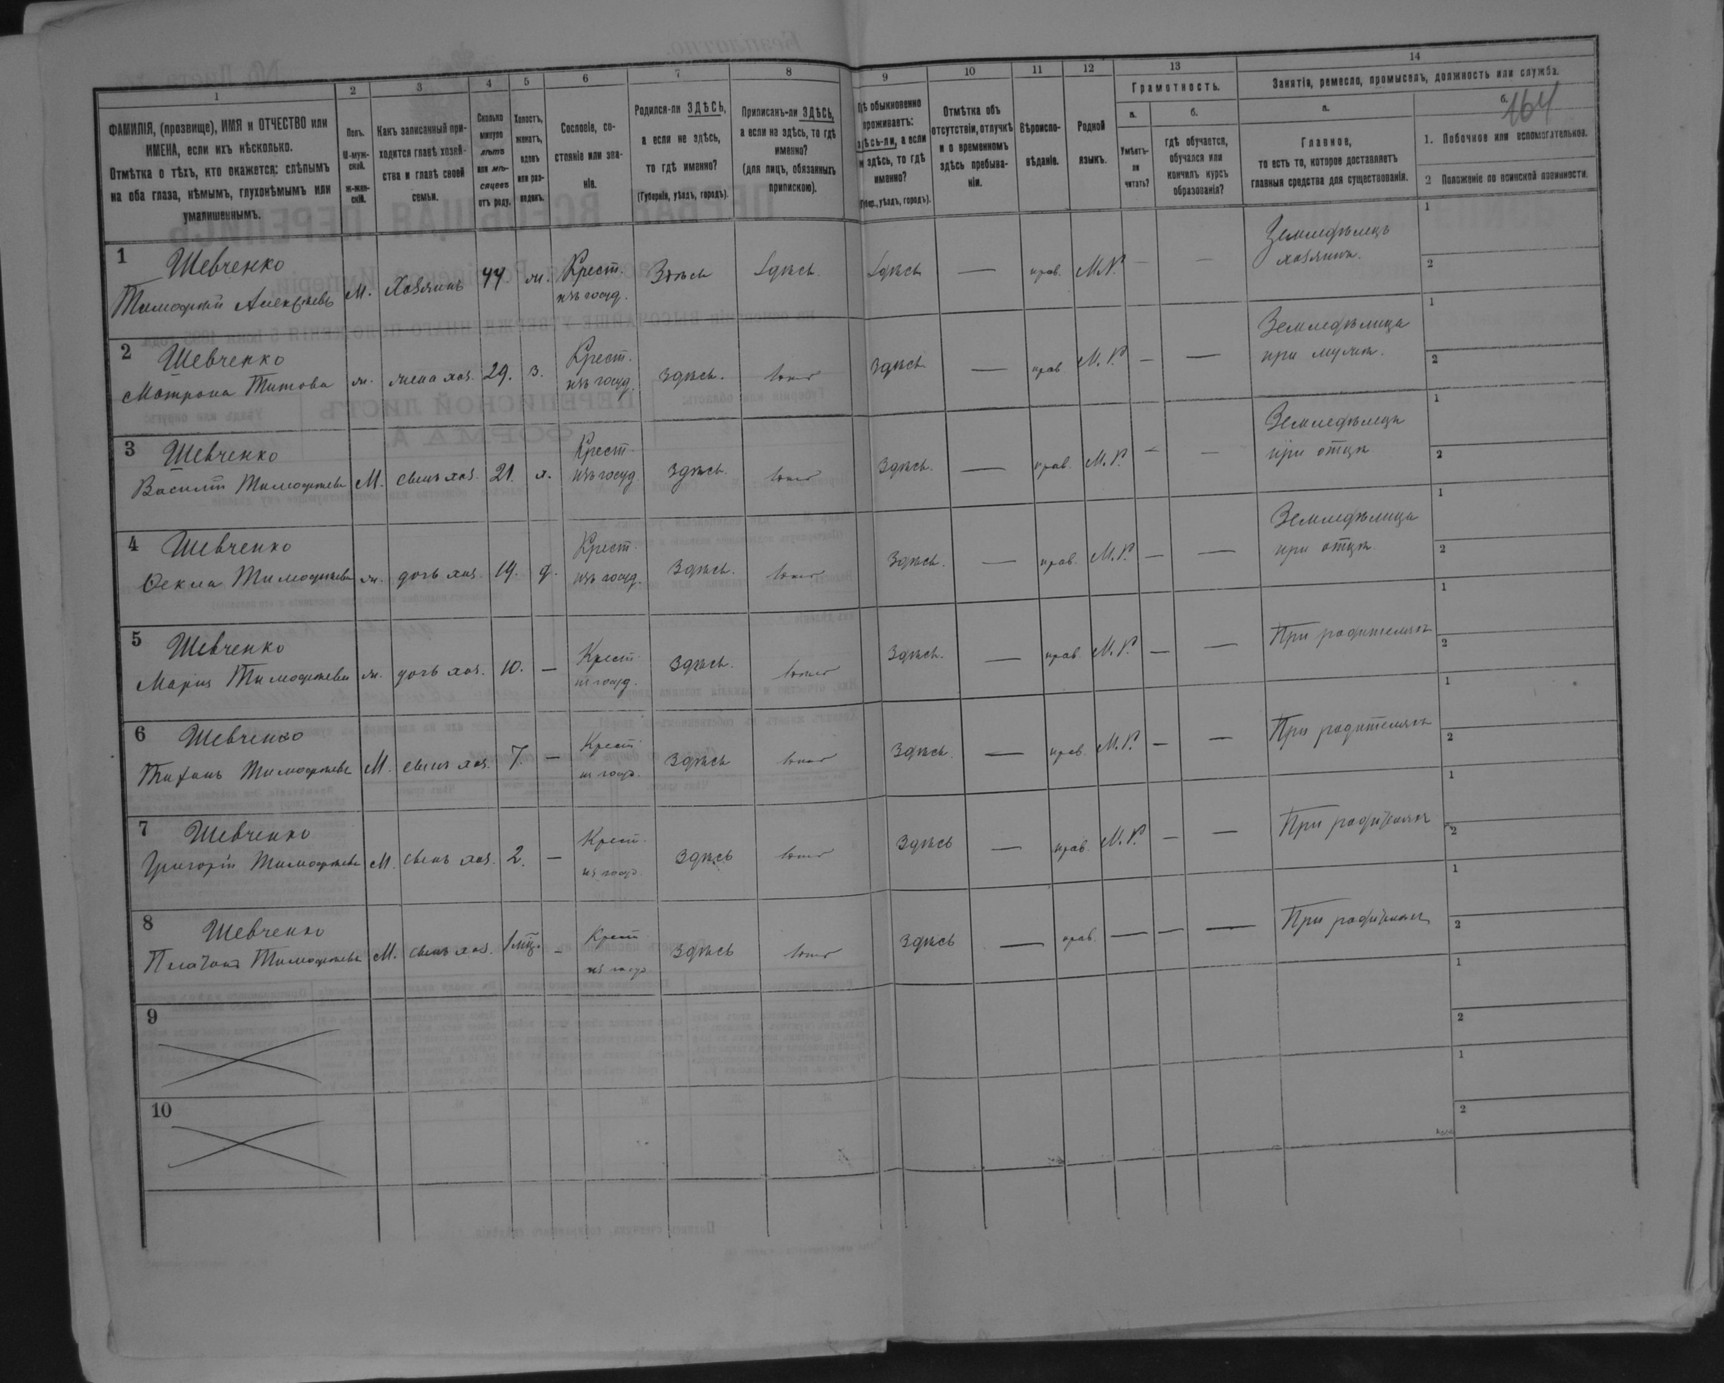 164
1 2 3 4 5 6 7 8 9 10 11 12 13 14
ФАМИЛІЯ, (прозвище), ИМЯ и ОТЧЕСТВО или ИМЕНА, если ихъ нѣсколько.
Отмѣтка о тѣхъ, кто окажется: слѣпымъ на оба глаза, нѣмымъ, глухонѣмымъ или умалишеннымъ.
Полъ. М-мужской. Ж-женскій.
Какъ записанный приходится главѣ хозяйства и главѣ своей семьи.
Сколько минуло лѣтъ или мѣсяцевъ отъ роду.
Холостъ, женатъ, вдовъ или разведенъ.
Сословіе, состояніе или званіе.
Родился-ли ЗДѢСЬ, а если не здѣсь, то гдѣ именно?
(Губернія, уѣздъ, городъ).
Приписанъ-ли ЗДѢСЬ, а если не здѣсь, то гдѣ именно?
(для лицъ, обязанныхъ припискою).
Гдѣ обыкновенно проживаетъ: здѣсь-ли, а если не здѣсь, то гдѣ именно?
(Губ., уѣздъ, городъ).
Отмѣтка объ отсутствіи, отлучкѣ и о временномъ здѣсь пребываніи.
Вѣроисповѣданіе.
Родной языкъ.
Грамотность.
а. Умѣетъ-ли читать?
б. гдѣ обучается, обучался или кончилъ курсъ образованія?
Занятія, ремесло, промыселъ, должность или служба.
а. Главное, то есть то, которое доставляетъ главныя средства для существованія.
б. 1. Побочное или вспомогательное.
2 Положеніе по воинской повинности.
1 Шевченко Тимофей Алексѣевъ М. хозяинъ 44 ж. Крест. изъ госуд. Здѣсь Здѣсь Здѣсь — прав. М.Р. — — Земледѣлецъ хозяинъ. 1 2
2 Шевченко Матрона Титова ж. жена хоз. 29. з. Крест. изъ госуд. Здѣсь. Здѣсь — прав М.Р. — — Земледѣлица при мужѣ. 1 2
3 Шевченко Василій Тимофеевъ М. сынъ хоз. 21. х. Крест. изъ госуд. Здѣсь. Здѣсь. — прав. М.Р. — — Земледѣлецъ при отцѣ. 1 2
4 Шевченко Ѳекла Тимофеева ж. дочь хоз. 19. д. Крест. изъ госуд. Здѣсь. Здѣсь. — прав. М.Р. — — Земледѣлица при отцѣ 1 2
5 Шевченко Марія Тимофеева ж. дочь хоз. 10. — Крест. из госуд. Здѣсь. Здѣсь. — прав. М.Р. — — При родителяхъ 1 2
6 Шевченко Тихонъ Тимофеевъ М. сынъ хоз. 7. — Крест. из госуд. Здѣсь Здѣсь. — прав. М.Р. — — При родителяхъ 1 2
7 Шевченко Григорій Тимофеевъ М. сынъ хоз. 2. — Крест. из госуд. Здѣсь Здѣсь — прав. М.Р. — — При родителяхъ 1 2
8 Шевченко Платонъ Тимофеевъ М. сынъ хоз. 1 мѣс. — Крест из госуд Здѣсь Здѣсь — прав. — — — При родителяхъ 1 2
9 1 2
10 1 2